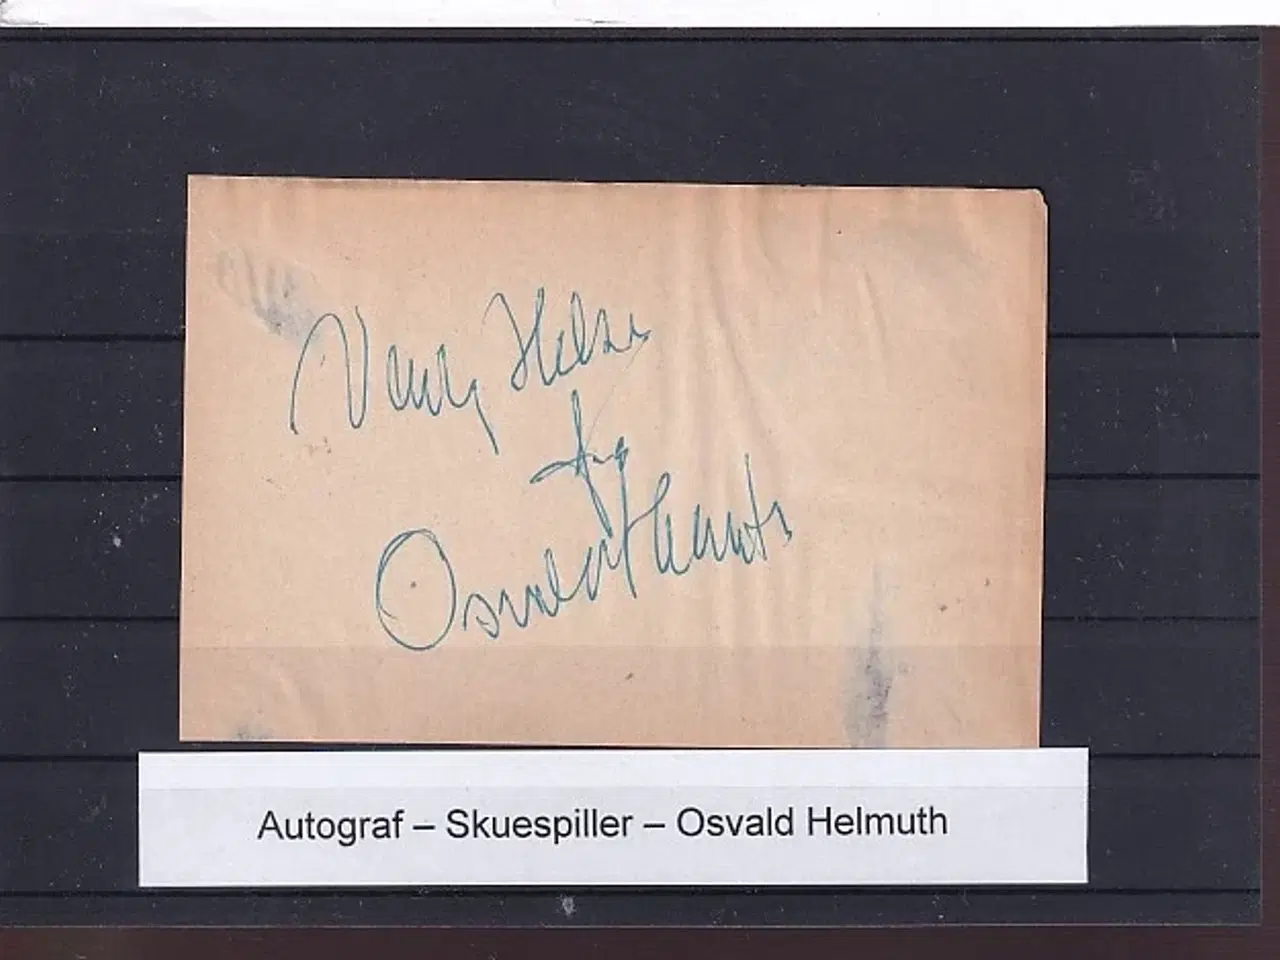 Venlig Hilsen
fra
Osvald Helmuth
Autograf – Skuespiller – Osvald Helmuth